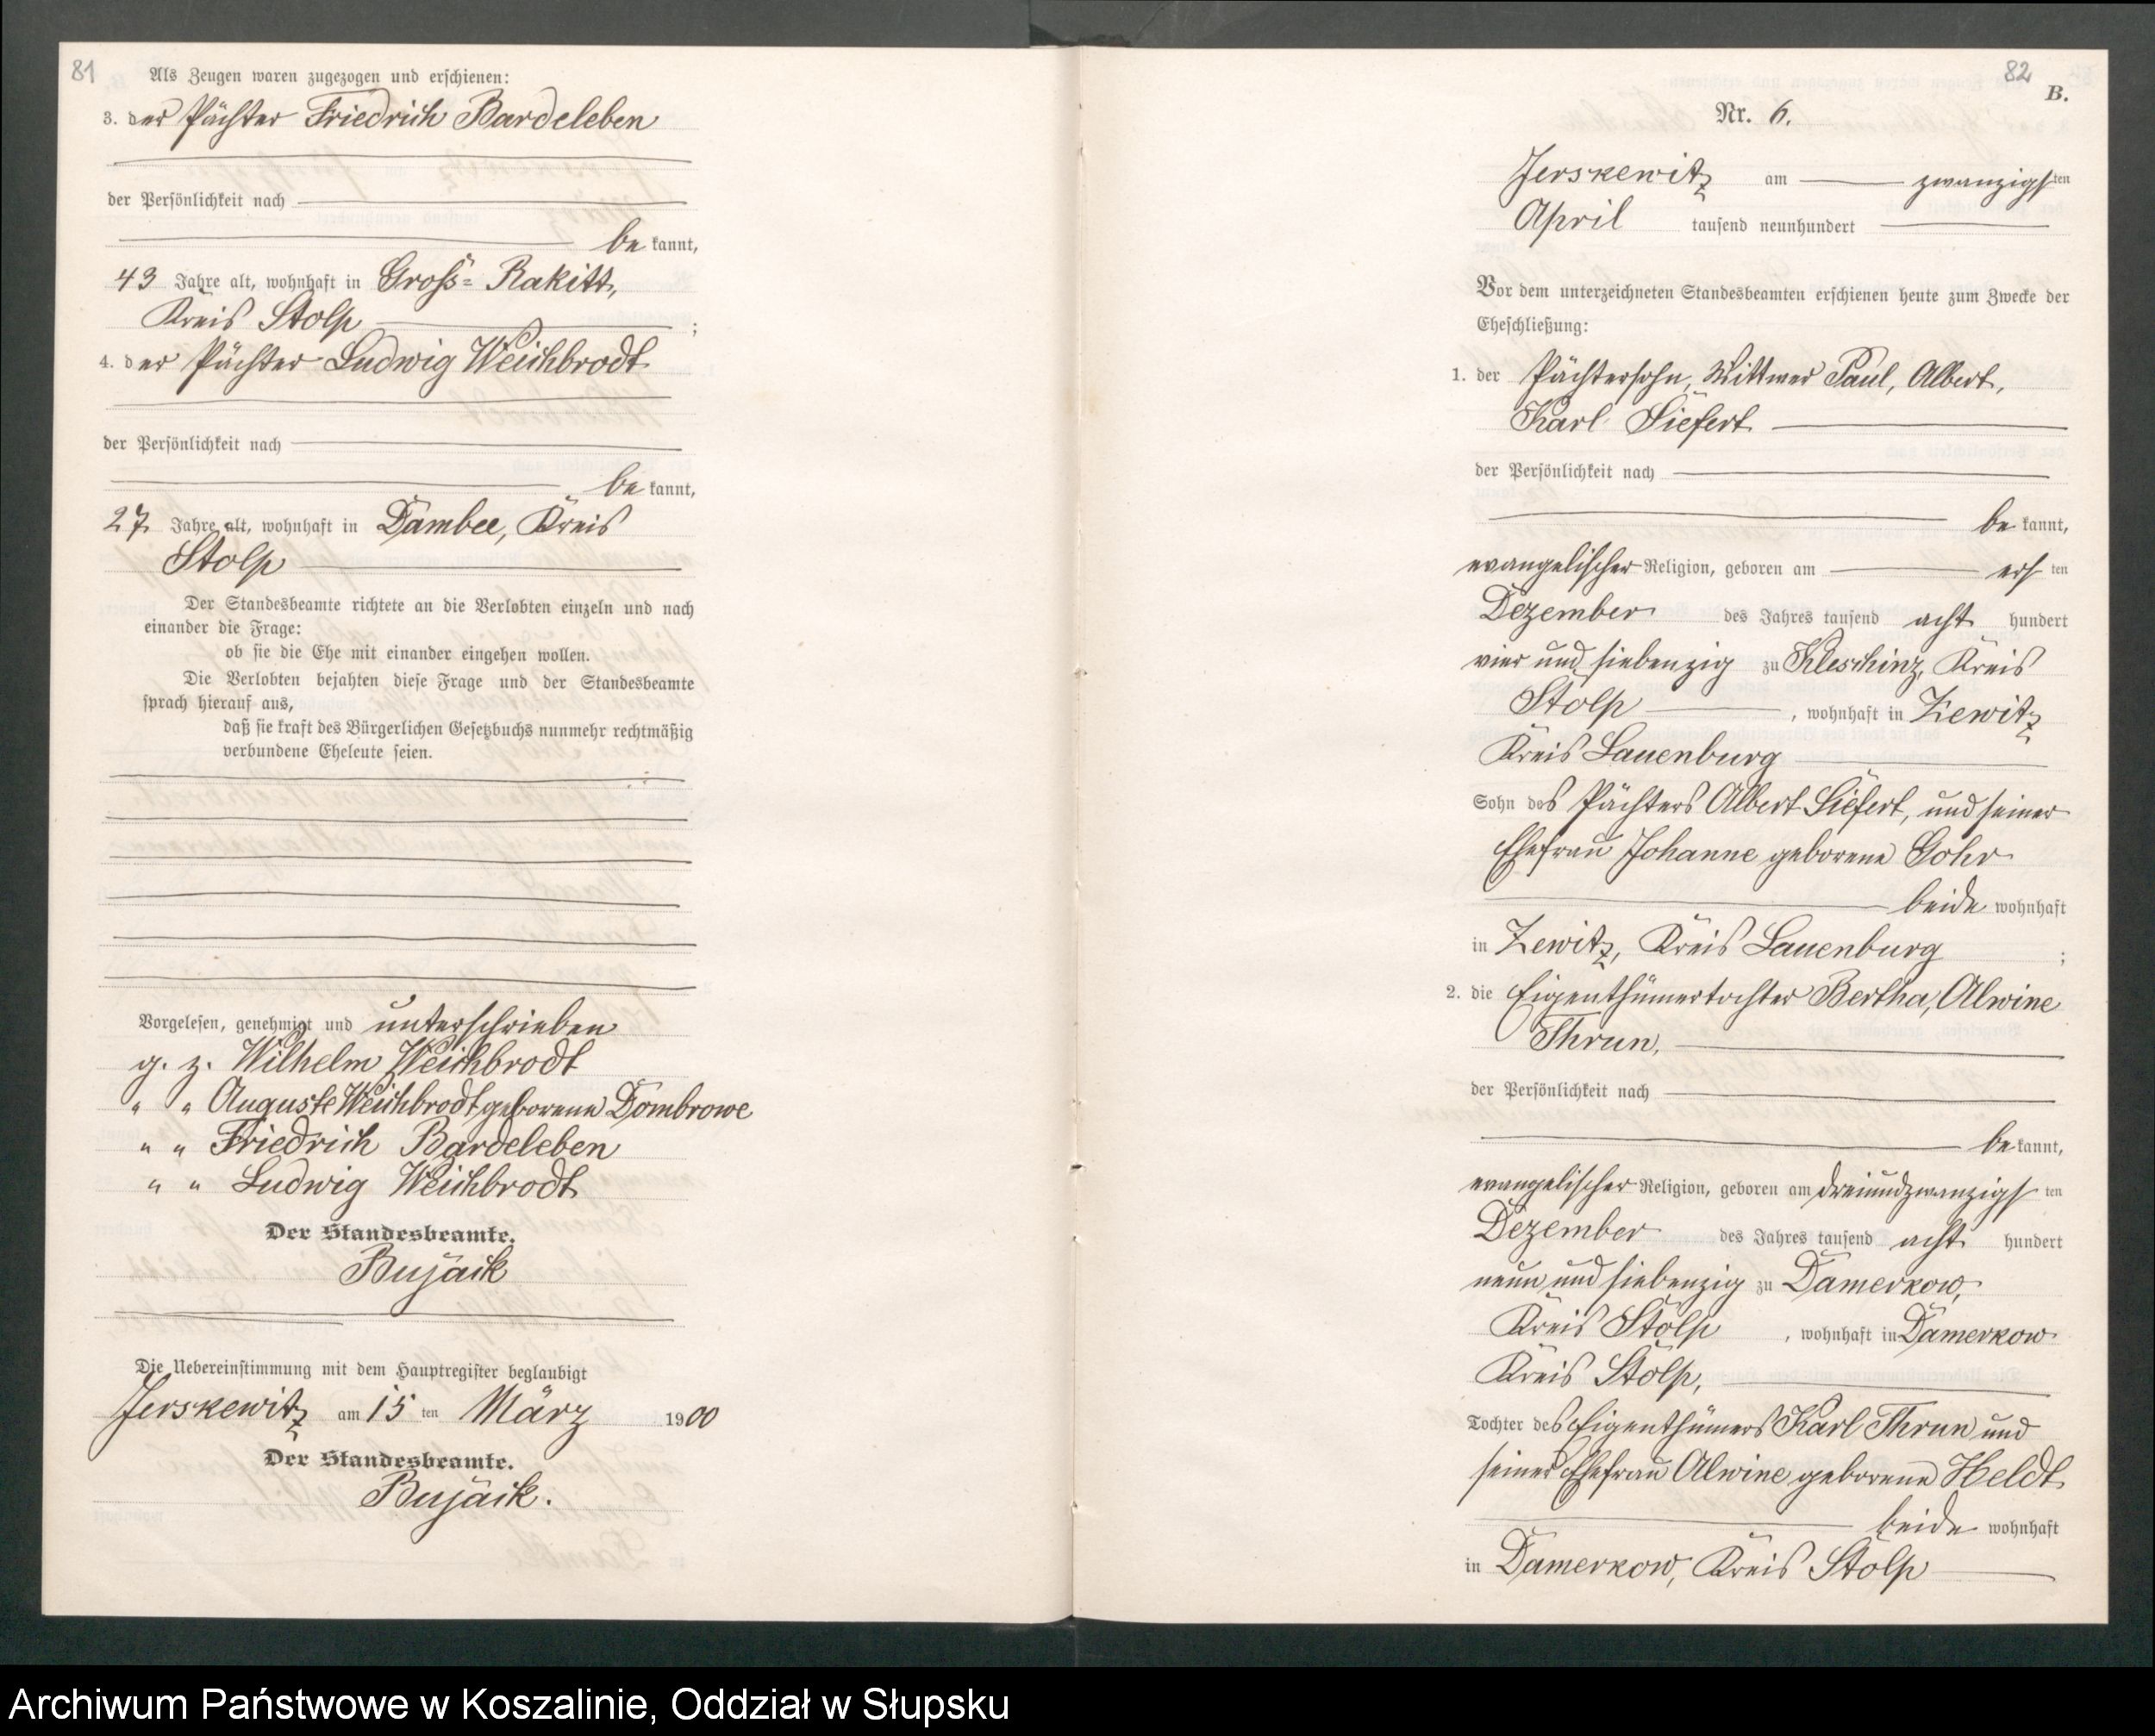 81
Als Zeugen waren zugezogen und erschienen:
3. der Pächter Friedrich Bardeleben
der Persönlichkeit nach
be kannt,
43 Jahre alt, wohnhaft in Gross-Rakitt,
Kreis Stolp ;
4. der Pächter Ludwig Weichbrodt
der Persönlichkeit nach
be kannt,
27 Jahre alt, wohnhaft in Dambee, Kreis
Stolp
Der Standesbeamte richtete an die Verlobten einzeln und nach
einander die Frage:
ob sie die Ehe mit einander eingehen wollen.
Die Verlobten bejahten diese Frage und der Standesbeamte
sprach hierauf aus,
daß sie kraft des Bürgerlichen Gesetzbuchs nunmehr rechtmäßig
verbundene Eheleute seien.
Vorgelesen, genehmigt und unterschrieben
g. z. Wilhelm Weichbrodt
" " Auguste Weichbrodt geborene Dombrowe
" " Friedrich Bardeleben
" " Ludwig Weichbrodt
Der Standesbeamte.
Bujack
Die Uebereinstimmung mit dem Hauptregister beglaubigt
Jerskewitz am 15 ten März 1900
Der Standesbeamte.
Bujack.
82
B.
Nr. 6.
Jerskewitz am zwanzigsten
April tausend neunhundert
Vor dem unterzeichneten Standesbeamten erschienen heute zum Zwecke der
Eheschließung:
1. der Pächtersohn, Wittwer Paul, Albert,
Karl Siefert
der Persönlichkeit nach
be kannt,
evangelischer Religion, geboren am ersten
Dezember des Jahres tausend acht hundert
vier und siebenzig zu Kleschinz, Kreis
Stolp , wohnhaft in Zewitz
Kreis Lauenburg
Sohn des Pächters Albert Siefert, und seiner
Ehefrau Johanne geborene Gohr
beide wohnhaft
in Zewitz, Kreis Lauenburg ;
2. die Eigenthümertochter Bertha, Alwine
Thrun,
der Persönlichkeit nach
be kannt,
evangelischer Religion, geboren am dreiundzwanzigsten
Dezember des Jahres tausend acht hundert
neun und siebenzig zu Damerkow,
Kreis Stolp , wohnhaft in Damerkow
Kreis Stolp,
Tochter des Eigenthümers Karl Thrun und
seiner Ehefrau Alwine geborene Heldt
beide wohnhaft
in Damerkow, Kreis Stolp
Archiwum Państwowe w Koszalinie, Oddział w Słupsku